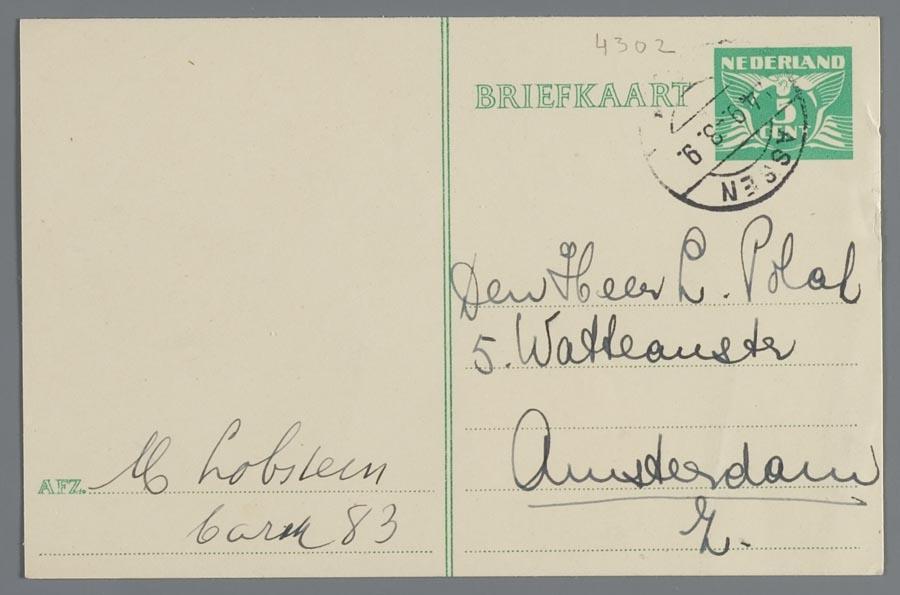 4302
BRIEFKAART
NEDERLAND
5
CENT
ASSEN
Den Heer L. Polak
5. Watteaustr
Amsterdam
Z.
AFZ. M Lobstein
barak 83